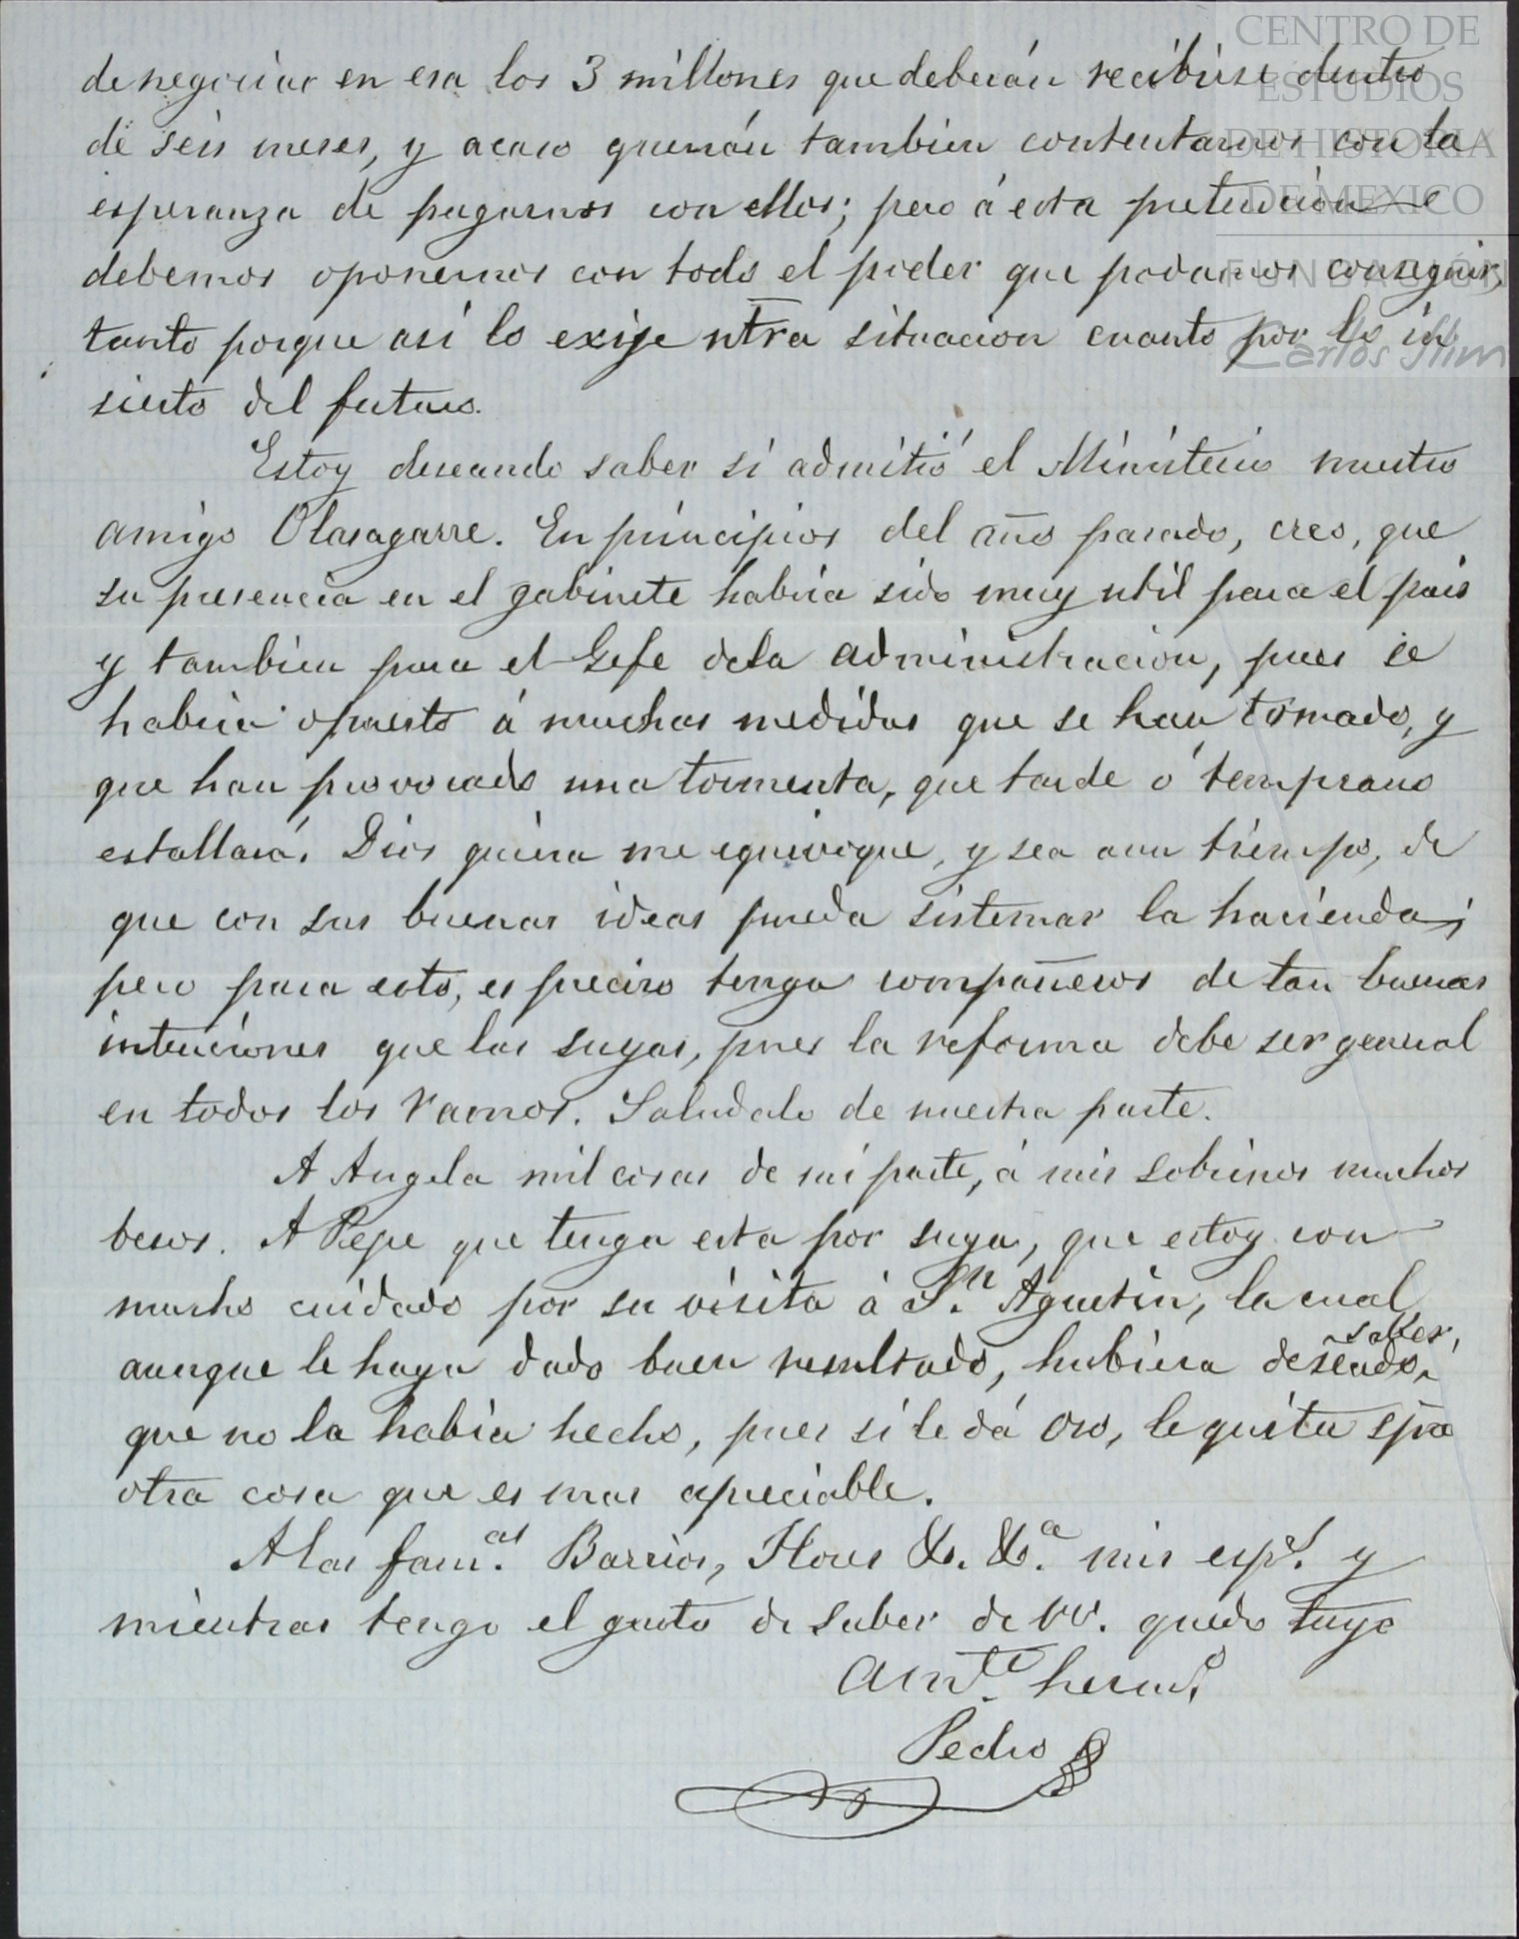 de negociar en esa los 3 millones que deberán recibirse dentro
de seis meses, y acaso querrán tambien contentarnos con la
esperanza de pagarnos con ellos; pero á esta pretencion
debemos oponernos con todo el poder que podamos conseguir,
tanto porque asi lo exije ntra situacion cuanto por lo in
sierto del futuro.
Estoy deseando saber si admitió el Ministerio nuestro
amigo Olasagarre. En principios del año pasado, creo, que
su presencia en el gabinete habria sido muy util para el pais
y tambien para el Gefe dela administracion, pues se
habria opuesto á muchas medidas que se han tomado, y
que han provocado una tormenta, que tarde ó temprano
estallará. Dios quiera me equivoque, y sea aun tiempo, de
que con sus buenas ideas pueda sistemar la hacienda;
pero para esto, es preciso tenga compañeros de tan buenas
intenciones que las suyas, pues la reforma debe ser general
en todos los ramos. Saludalo de nuestra parte.
A Angela mil cosas de mi parte, á mis sobrinos muchos
besos. A Pepe que tenga esta por suya, que estoy con
mucho cuidado por su visita á Sn. Agustin, la cual
aunque le haya dado buen resultado, hubiera deseado saber,
que no la habia hecho, pues si le dá oro, le quita spre
otra cosa que es mas apreciable.
A las fam.as Barrios, Flores &. &.a mis esps. y
mientras tengo el gusto de saber de VV. quedo tuyo
amte. hermo.
Pedro
CENTRO DE
ESTUDIOS
DE HISTORIA
DE MEXICO
FUNDACIÓN
Carlos Slim